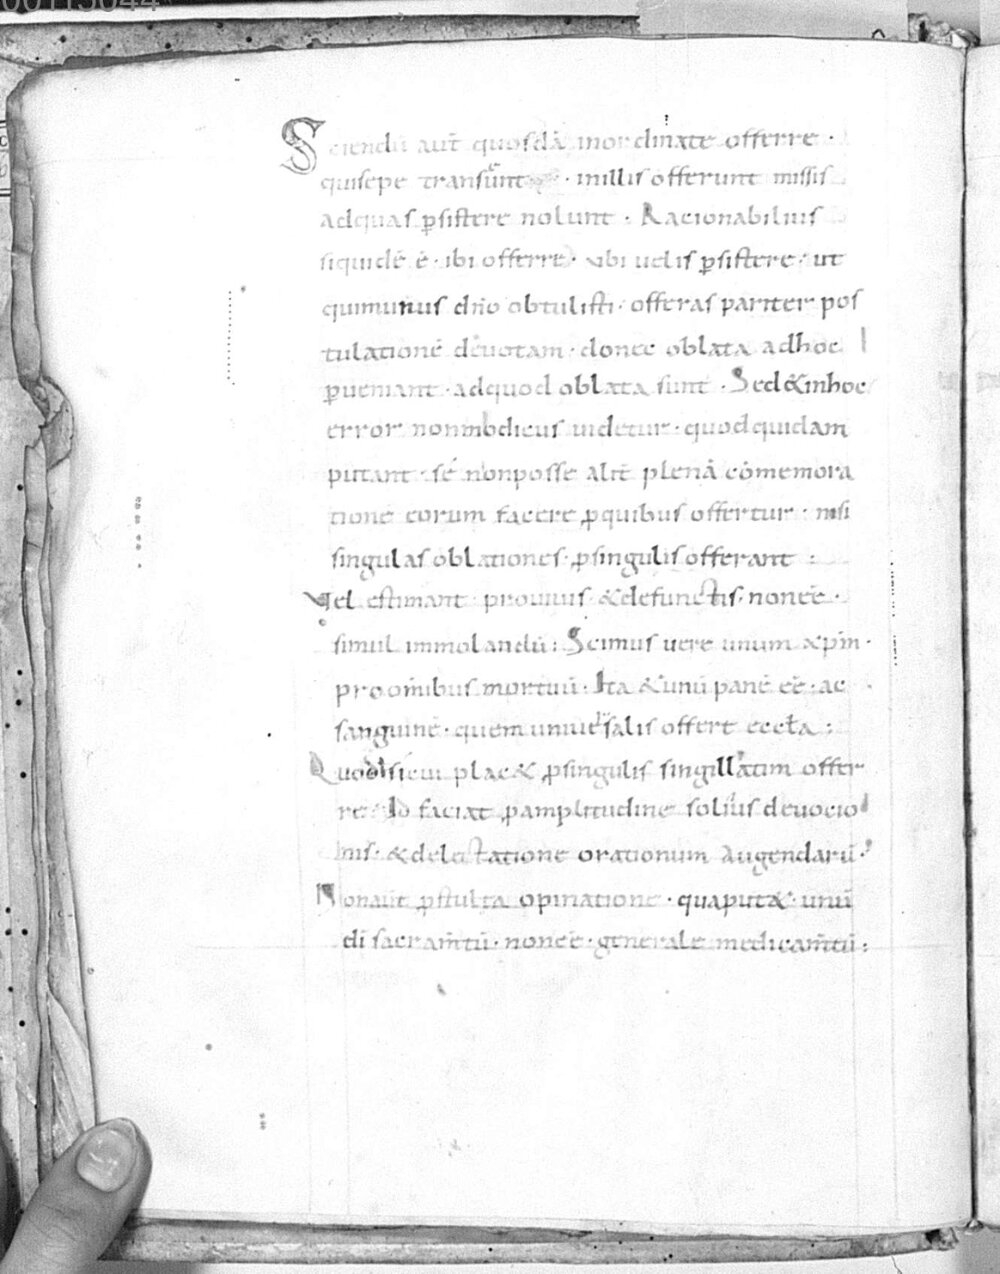 Sciendū aut̄ quosdā inordinate offerre ·
qui sepe transeunt · in illis offerunt missis
ad quas p̱sistere nolunt · Racionabilius
siquidē ē · ibi offerre · ubi uelis p̱sistere · ut
qui munus dn̄o obtulisti · offeras pariter pos
tulationē deuotam · donec oblata ad hoc
p̱ueniant · ad quod oblata sunt · Sed & in hoc
error non modicus uidetur · quod quidam
putant · se non posse alit̄ plenā cōmemora
tione eorum facere p̱ quibus offertur · nisi
singulas oblationes · p̱ singulis offerant :
Vel estimant pro uiuis · & defunctis · non eē ·
simul immolandū : Scimus uere unum xp̄m ·
pro om̄ibus mortuū · Ita & unū panē eē · ac
sanguinē · quem uniuersalis offert eccl̄a :
Quod si cui plac& p̱ singulis singillatim offer
re · Id faciat p̱ amplitudine solius deuocio
nis · & delectatione orationum augendarū ·
Non aut̄ p̱ stulta opinatione · qua put& · unū
di̅ sacram̄tū · non eē · generale medicam̄tū :